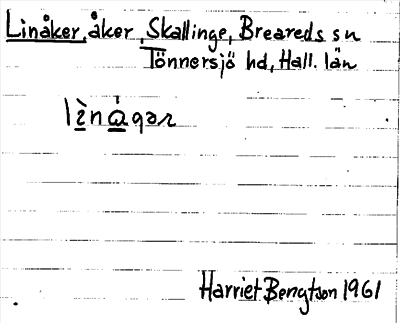 Linåker, åker, Skallinge, Breareds sn
Tönnersjö hd, Hall. län
lìnágər
Harriet Bengtson 1961